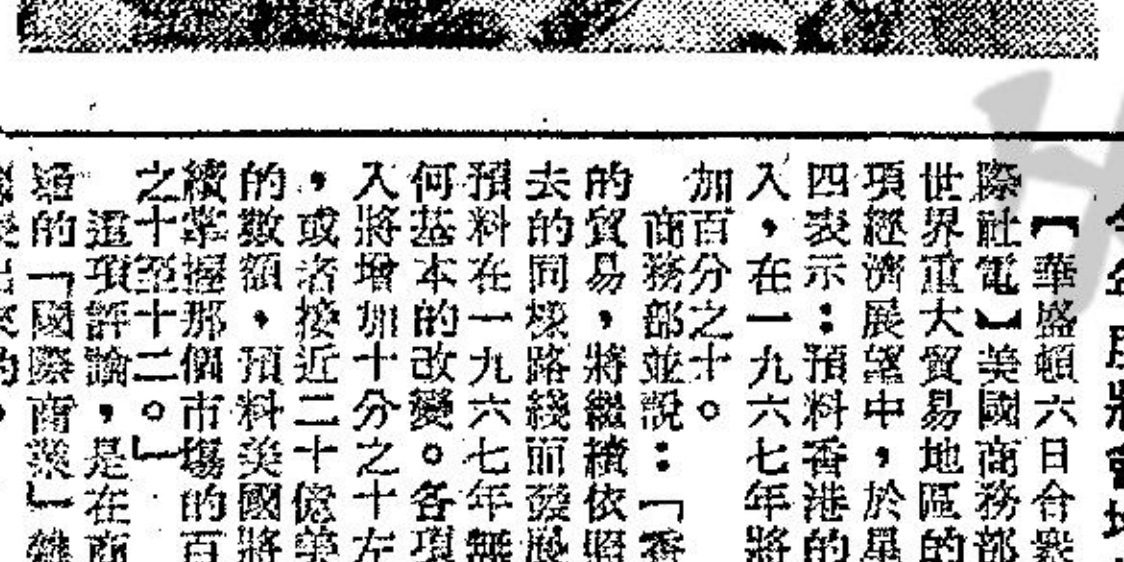 【華盛頓六日合衆
際社電】美國商務部
世界重大貿易地區的
項經濟展望中，於星
四表示：預料香港的
入，在一九六七年將
加百分之十。
商務部並說：「香
的貿易，將繼續依照
去的同樣路綫而發展
預料在一九六七年無
何基本的改變。各項
入將增加十分之十左
，或者接近二十億美
的數額，預料美國將
續掌握那個市場的百
之十至十二。」
這項評論，是在商
的「國際商業」雜